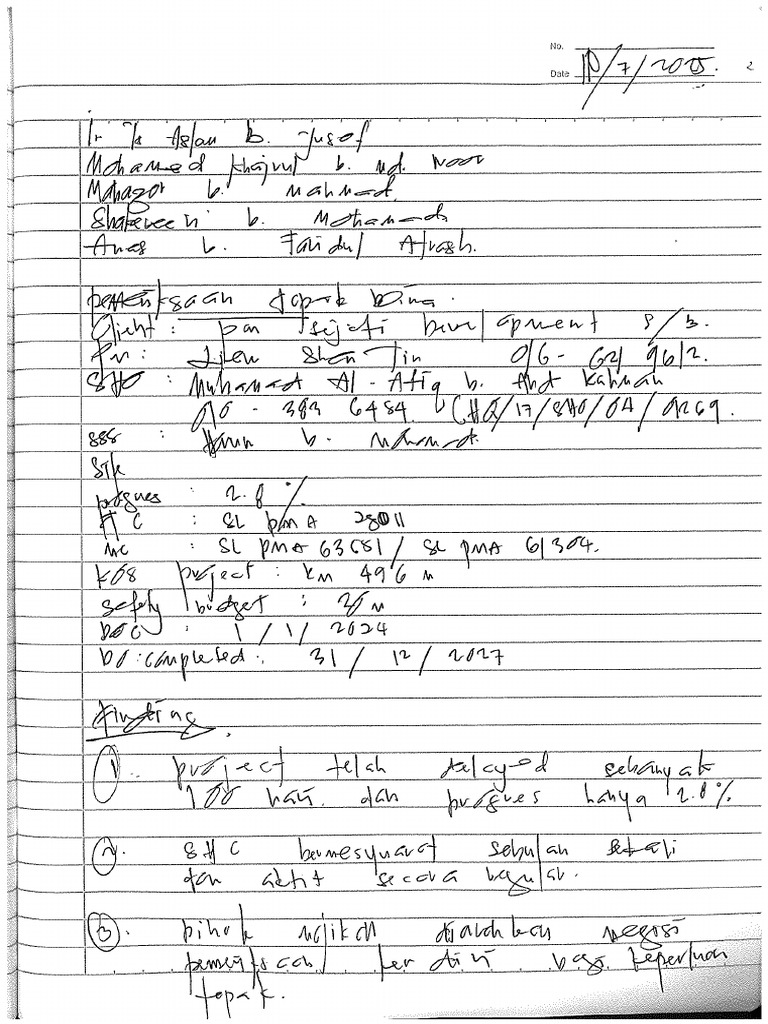 No.
Date 10/7/2025. 2
Ir Ts Aslan b. Jusof
Mohamed Khairul b. Md. Noor
Mahazor b. Mahmad.
b. Mohamad
Anas b. Faridul Atrash.
pemeriksaan tapak bina.
Client: pan sejati Development S/B.
PM: Liew Shen Tin 016-621 9612.
SHO: Muhamad Al-Afiq b. Abd Rahman
010-383 6484 (HQ/17/SHO/OA/0269.
SSS : b. Mohamad.
progres : 2.8 %
TC : SL PMA 28011
MC : SL PMA 63681/ SL PMA 61304.
KOS project : RM 496 M
Safety budget : M
DOC : 1/1/2024
DO completed: 31/12/2027
Finding
1. project telah delayed sebanyak
100 hari. dan progres hanya 2.8%
2. SHC bermesyuarat sebulan sekali
dan aktif secara
3. pihak majikan diarahkan
bagi keperluan
tapak.